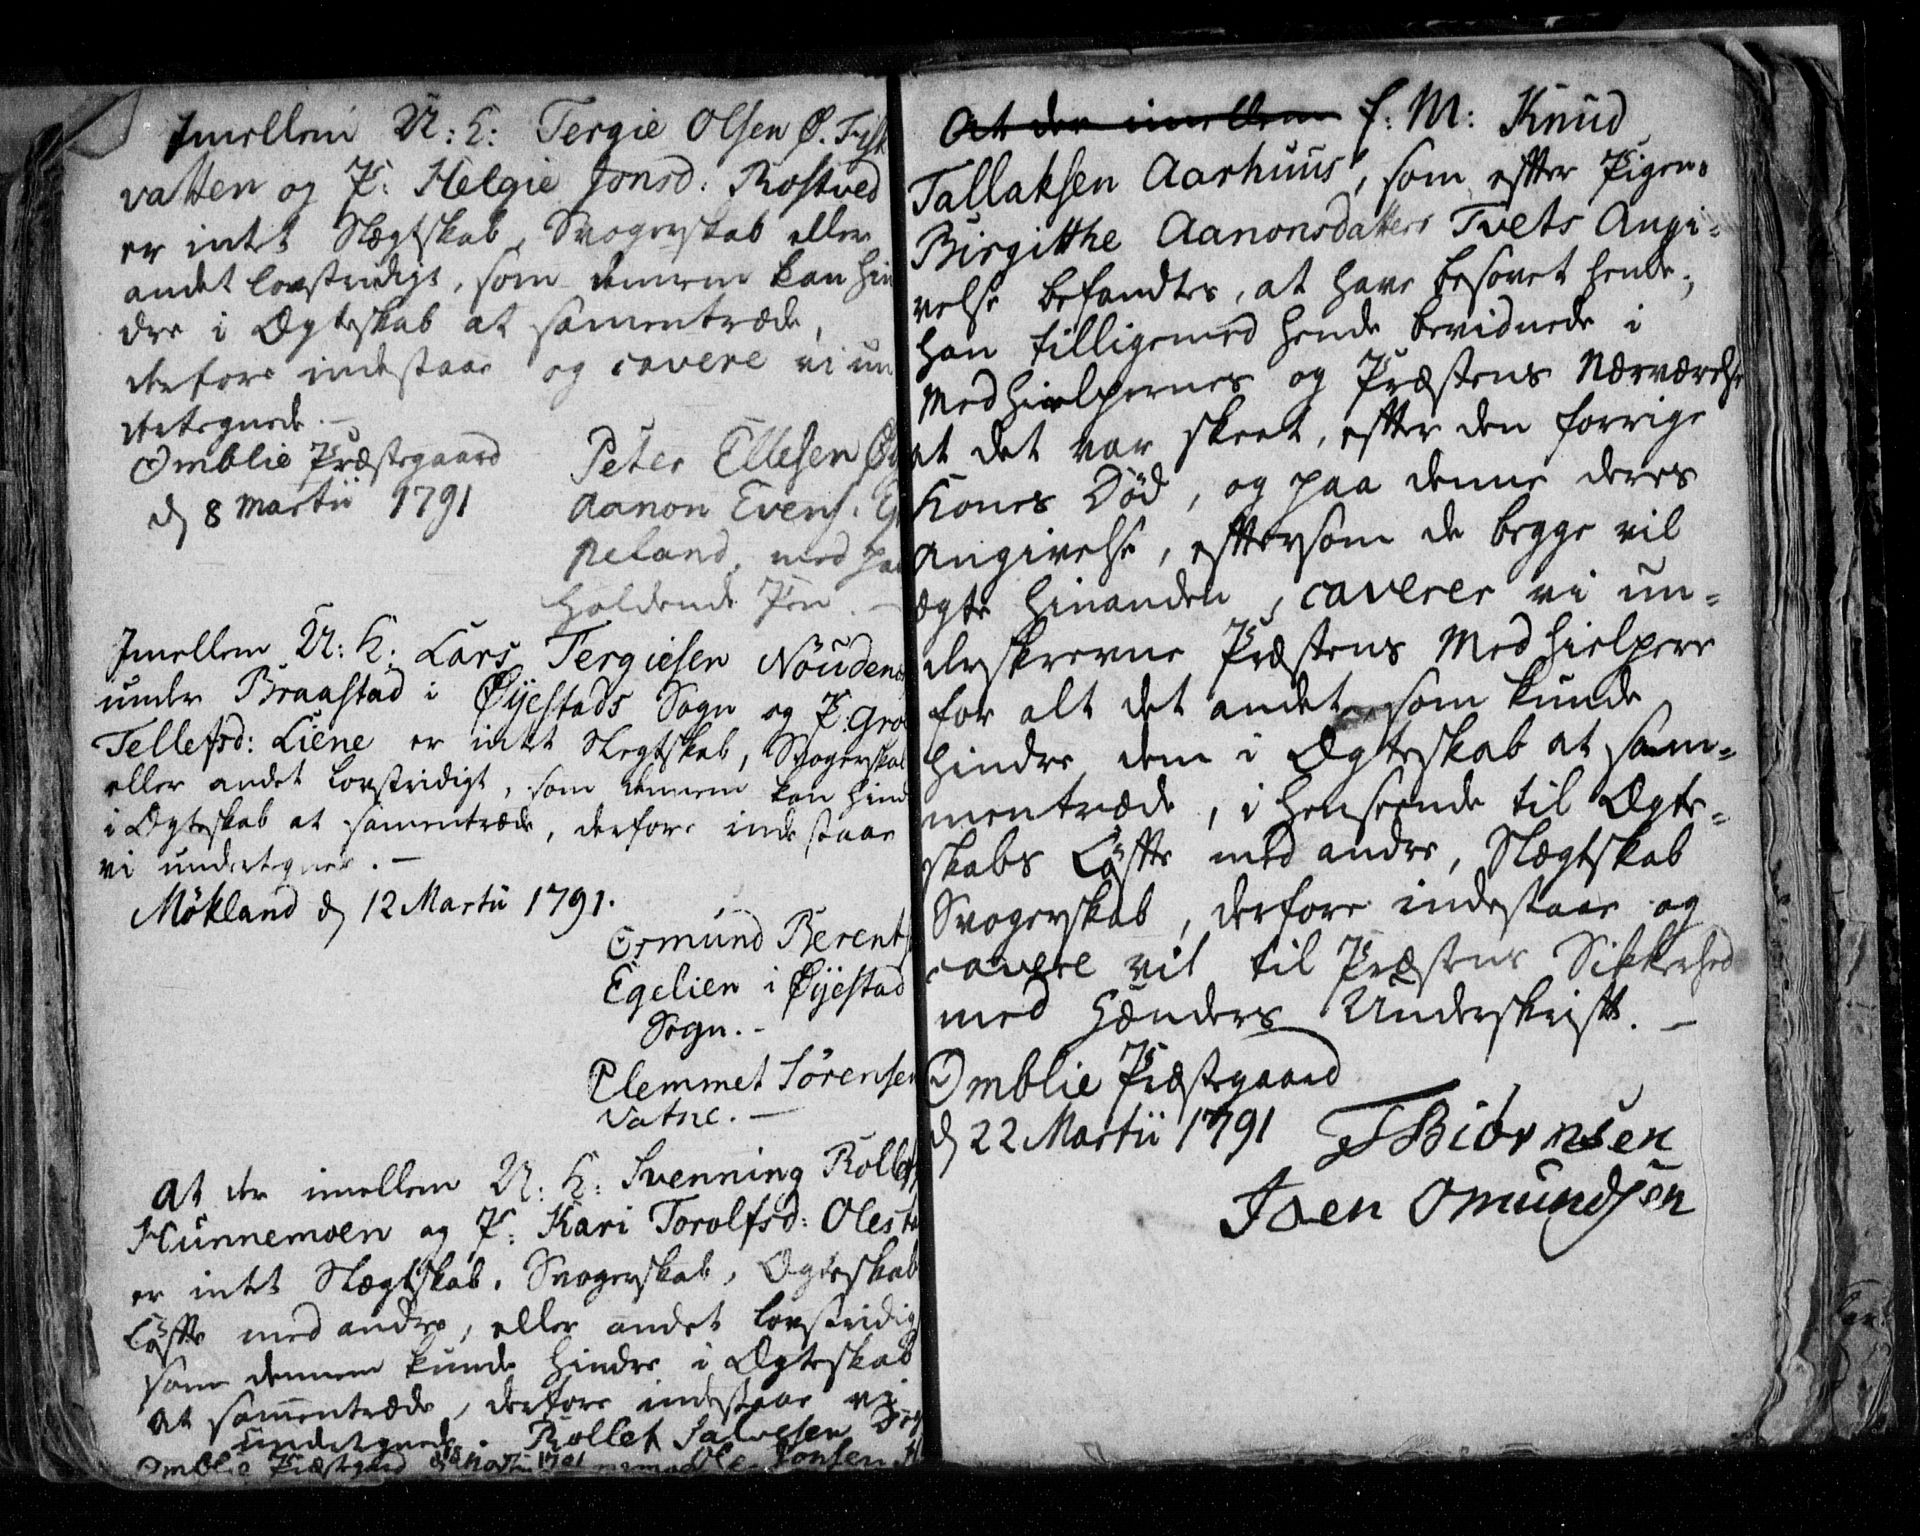 Imellem U: K: Tergie Olsen Ø. Fisk
vatten og P: Helgie Jonsd: Rostved
er intet Slægtskab, Svogerskab eller
andet lovstridigt, som dennem kan hin
dre i Ægteskab at samentræde,
derfore indestaar og cavere vi un
dertegnede. —
Omblie Præstegaard
d 8 Martii 1791
Peter Ellesen
Aanon Evens.
peland, med paa
holdende Pen. —
Imellem U: K: Lars Tergiesen Nöuden
under Braastad i Øyestads Sogn og P: Gro
Tellefsd: Liene er intet Slegtskab, Svogerskab
eller andet lovstridigt, som dennem kan hind
i Ægteskab at samentræde, derfore indestaar
vi undertegner. —
Mökland d 12 Martii 1791.
Ormund Berents
Egelien i Øyestad
Sogn. -
Clemmet Sörensen
Vatne. —
At der imellem U: K: Svenning Rollefs
Hunnemoen og P: Kari Torolfsd: Oleste
er intet Slægtskab, Svogerskab, Ægteskabs
Löfte med andre, eller andet lovstridig
som dennem kunde hindre i Ægteskab
at samentræde, derfore indestaar vi
undertegnede. Rollef Salvesen
Omblie Præstgaard Martii 1791 Ole Jonsen
At der imellem E: M: Knud
Tallaksen Aarhuus, som efter Pigen
Birgitthe Aanonsdatters Tvets Angi-
velse befandtes, at have besovet hende;
han tilligemed hende bevidnede i
Medhielpernes og Præstens Nærværelse
at det var skeet, efter den forrige
Kones Död, og paa denne deres
Angivelse, eftersom de begge vil
ægte hinanden, caverer vi un-
derskrevne Præstens Medhielpere
for alt det andet som kunde
hindre dem i Ægteskab at sam-
mentræde, i Henseende til Ægte-
skabs Löfte med andre, Slægtskab
Svogerskab, derfore indestaar og
cavere vil til Præstens Sikkerhed
med Hænders Underskrift. —
Omblie Præstegaard
d 22 Martii 1791
T Biörnsen
Joen Omundsen